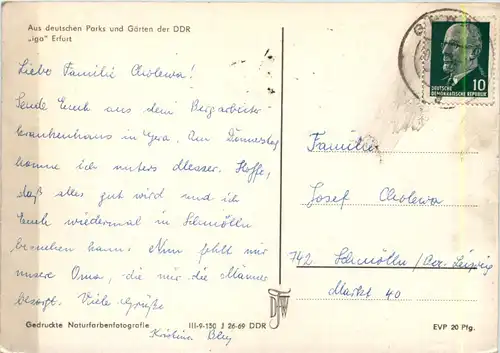 Aus deutschen Parks und Gärten der DDR
„iga“ Erfurt
Liebe Familie Cholewa!
Sende Euch aus dem Bergarbeiter-
krankenhaus in Gera. Am Donnerstag
komme ich unters Messer. Hoffe,
daß alles gut wird und ich
Euch wiedermal in Schmölln
besuchen kann. Nun fehlt mir
unsere Oma, die mir die Männer
besorgt. Viele Grüße
Kristina
Gedruckte Naturfarbenfotografie III-9-150 J 26-69 DDR
DEUTSCHE
DEMOKRATISCHE REPUBLIK 10
Familie
Josef Cholewa
742 Schmölln/Bez. Leipzig
Markt 40
EVP 20 Pfg.